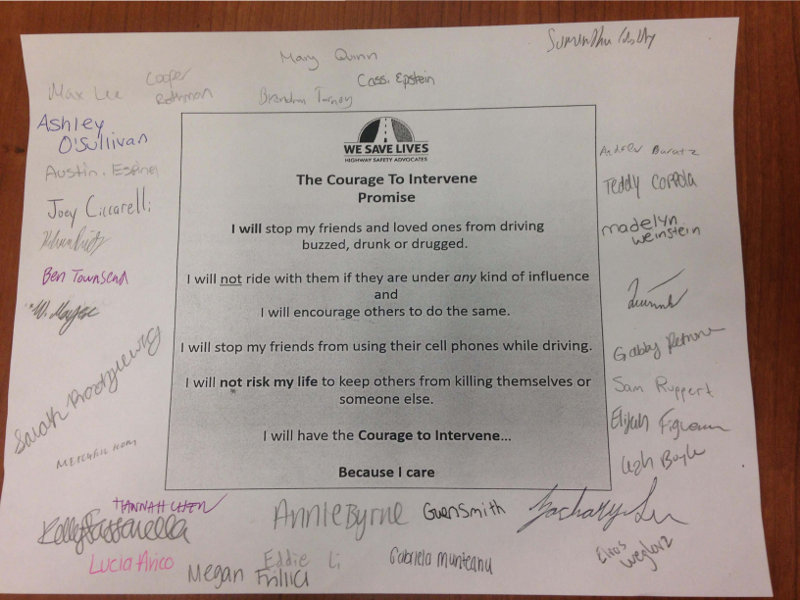 Mary Quinn
Cassi Epstein
Max Lee
Cooper
Ashley
O'Sullivan
Austin. Espinel
Joey Ciccarelli
Ben Townsend
Sarah
WE SAVE LIVES
HIGHWAY SAFETY ADVOCATES
The Courage To Intervene
Promise
I will stop my friends and loved ones from driving
buzzed, drunk or drugged.
I will not ride with them if they are under any kind of influence
and
I will encourage others to do the same.
I will stop my friends from using their cell phones while driving.
I will not risk my life to keep others from killing themselves or
someone else.
I will have the Courage to Intervene...
Because I care
Andrew Baratz
Teddy Coppola
madelyn
weinstein
Gabby
Sam Ruppert
Elijah Figueroa
Leigh Boyle
HANNAH CHEN
Kelly
Annie Byrne
Gwen Smith
Zachary
Lucia Arico
Megan
Eddie Li
Gabriela Munteanu